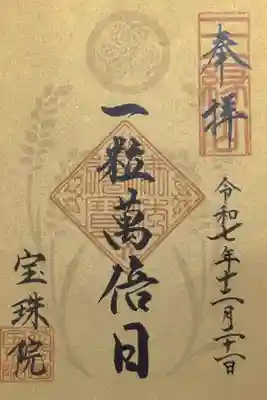 奉拝
一粒萬倍日
令和七年十二月二十一日
宝珠院